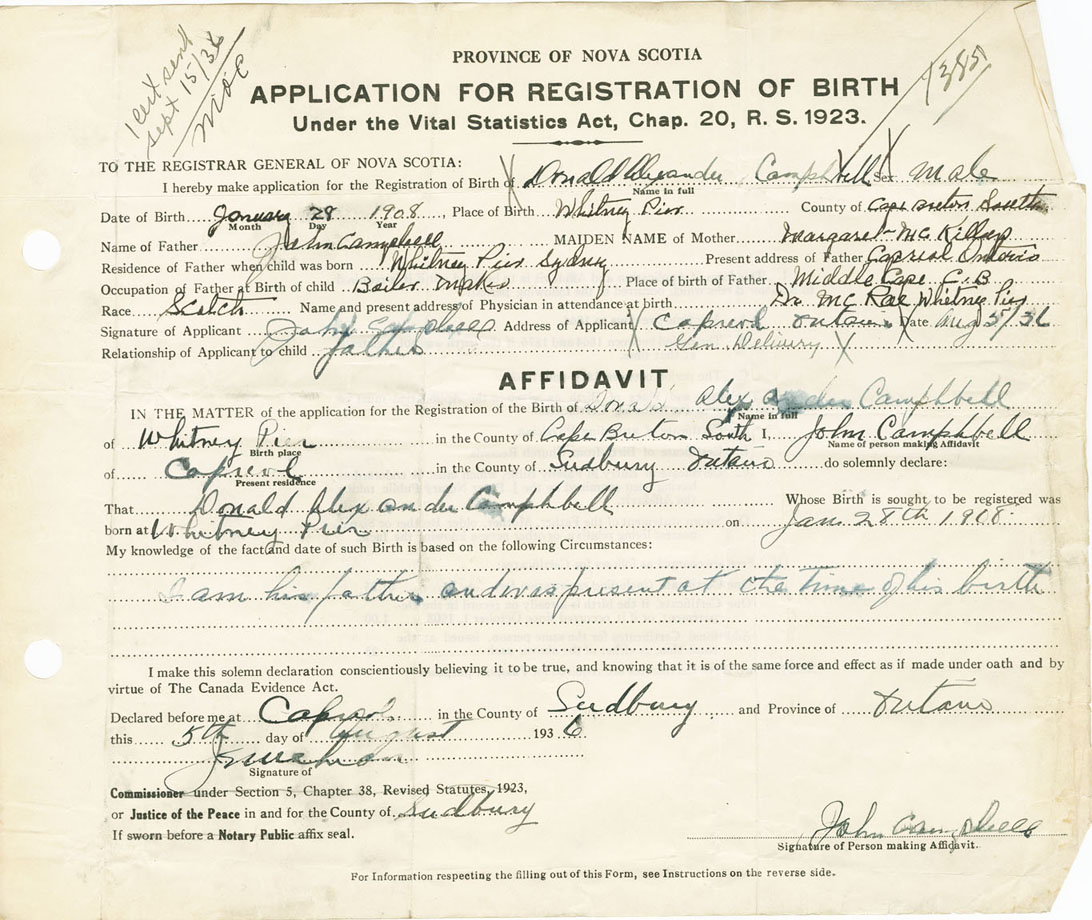 1 cert sent
Sept 15/36
1385
PROVINCE OF NOVA SCOTIA
APPLICATION FOR REGISTRATION OF BIRTH
Under the Vital Statistics Act, Chap. 20, R. S. 1923.
TO THE REGISTRAR GENERAL OF NOVA SCOTIA:
I hereby make application for the Registration of Birth of Donald Alexander Campbell Sex Male
Name in full
Date of Birth January 28 1908, Place of Birth Whitney Pier County of Cape Breton South
Month Day Year
Name of Father John Campbell MAIDEN NAME of Mother Margaret McKillop
Residence of Father when child was born Whitney Pier Sydney Present address of Father Capreol Ontario
Occupation of Father at Birth of child Boiler Maker Place of birth of Father Middle Cape C. B
Race Scotch Name and present address of Physician in attendance at birth Dr. McRae Whitney Pier
Signature of Applicant John Campbell Address of Applicant Capreol Ontario Date Aug 5/36
Relationship of Applicant to child father Gen Delivery
AFFIDAVIT
IN THE MATTER of the application for the Registration of the Birth of Donald Alexander Camphbell
Name in full
of Whitney Pier in the County of Cape Breton South I, John Camphbell
Birth place Name of person making Affidavit
of Capreol in the County of Sudbury Ontario do solemnly declare:
Present residence
That Donald Alexander Camphbell Whose Birth is sought to be registered was
born at Whitney Pier on Jan 28th 1908
My knowledge of the fact and date of such Birth is based on the following Circumstances:
I am his father and was present at the time of his birth
I make this solemn declaration conscientiously believing it to be true, and knowing that it is of the same force and effect as if made under oath and by
virtue of The Canada Evidence Act.
Declared before me at Capreol in the County of Sudbury and Province of Ontario
this 5th day of August 1936
Signature of
Commissioner under Section 5, Chapter 38, Revised Statutes, 1923,
or Justice of the Peace in and for the County of Sudbury
If sworn before a Notary Public affix seal.
John Campbell
Signature of Person making Affidavit.
For Information respecting the filling out of this Form, see Instructions on the reverse side.